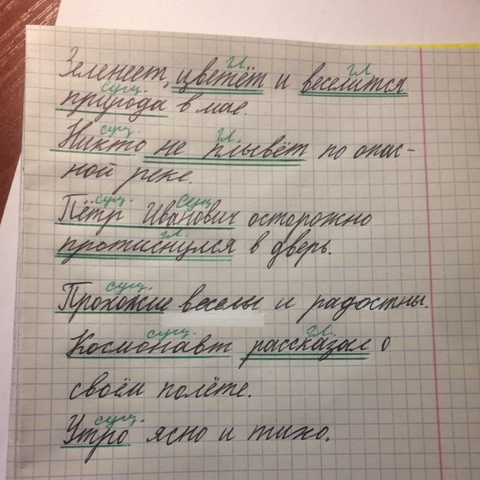 гл. гл.
Зеленеет, цветёт и веселится
сущ.
природа в мае.
сущ. гл.
Никто не плывёт по опас-
ной реке.
сущ. сущ.
Пётр Иванович осторожно
гл.
протиснулся в дверь.
сущ.
Прохожие веселы и радостны.
сущ. гл.
Космонавт рассказал о
своём полёте.
сущ.
Утро ясно и тихо.